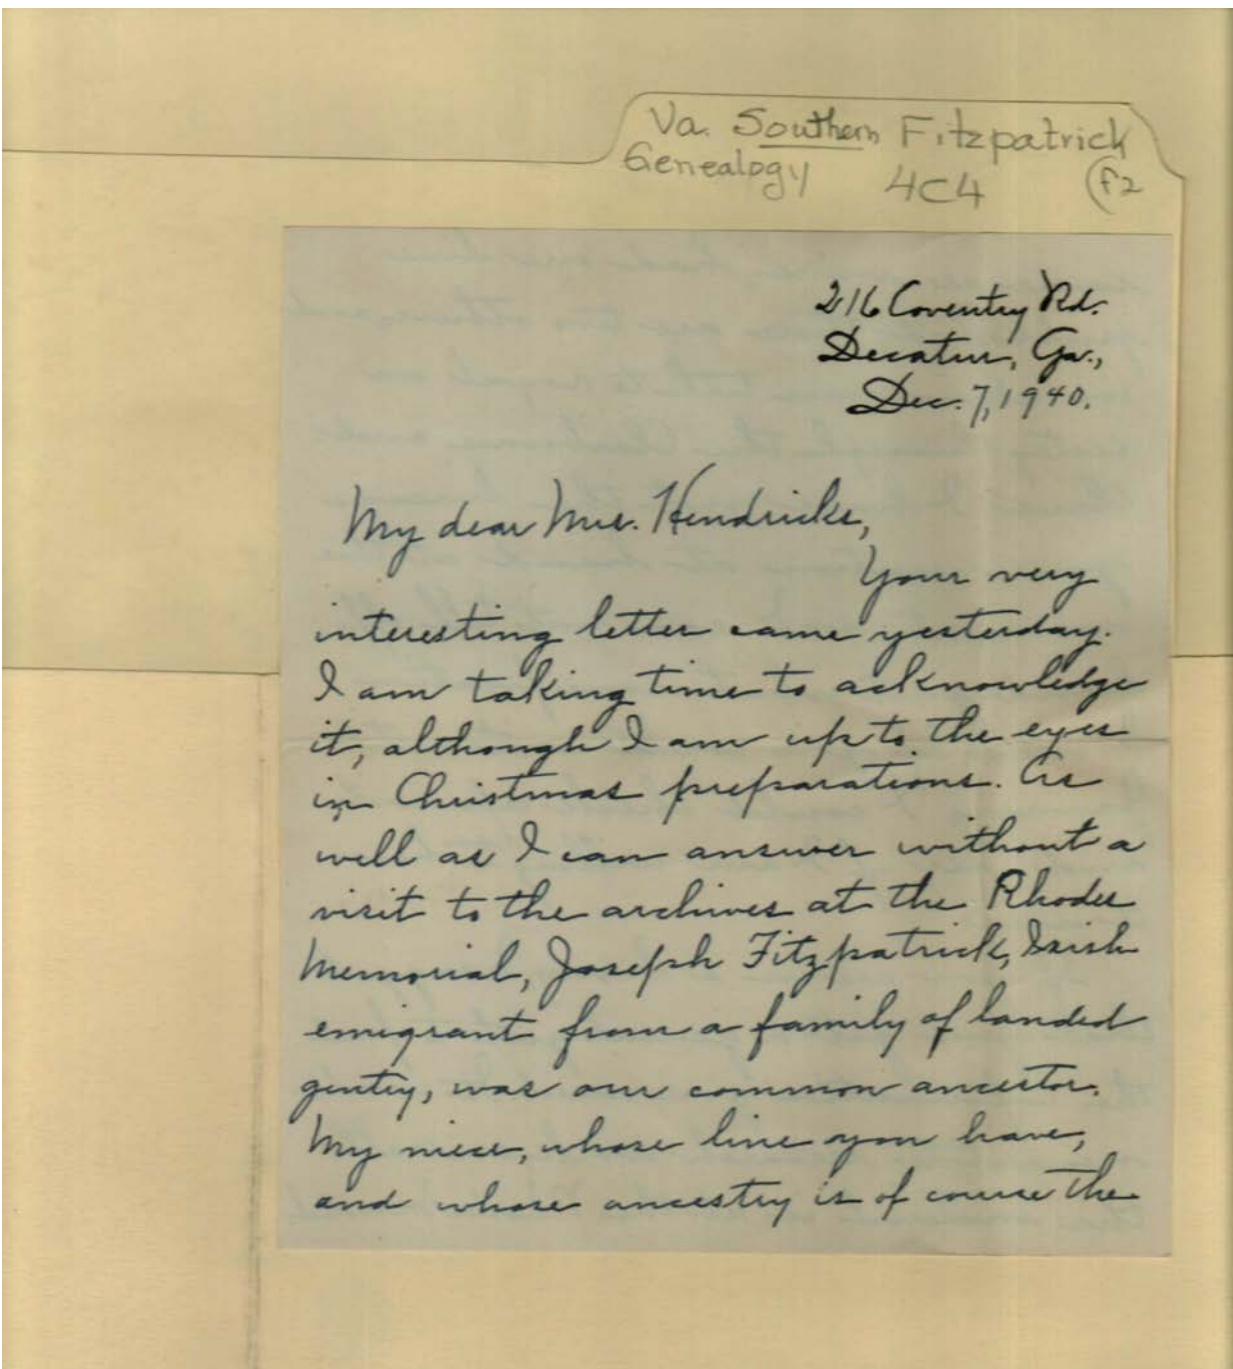 Va. Southern Fitzpatrick
Genealogy 4C4 (F2
216 Coventry Rd.
Decatur, Ga.,
Dec. 7, 1940.
My dear Mrs. Hendricks,
Your very
interesting letter came yesterday.
I am taking time to acknowledge
it, although I am up to the eyes
in Christmas preparations. As
well as I can answer without a
visit to the archives at the Rhodes
Memorial, Joseph Fitzpatrick, Irish
emigrant from a family of landed
gentry, was our common ancestor.
My niece, whose line you have,
and whose ancestry is of course the